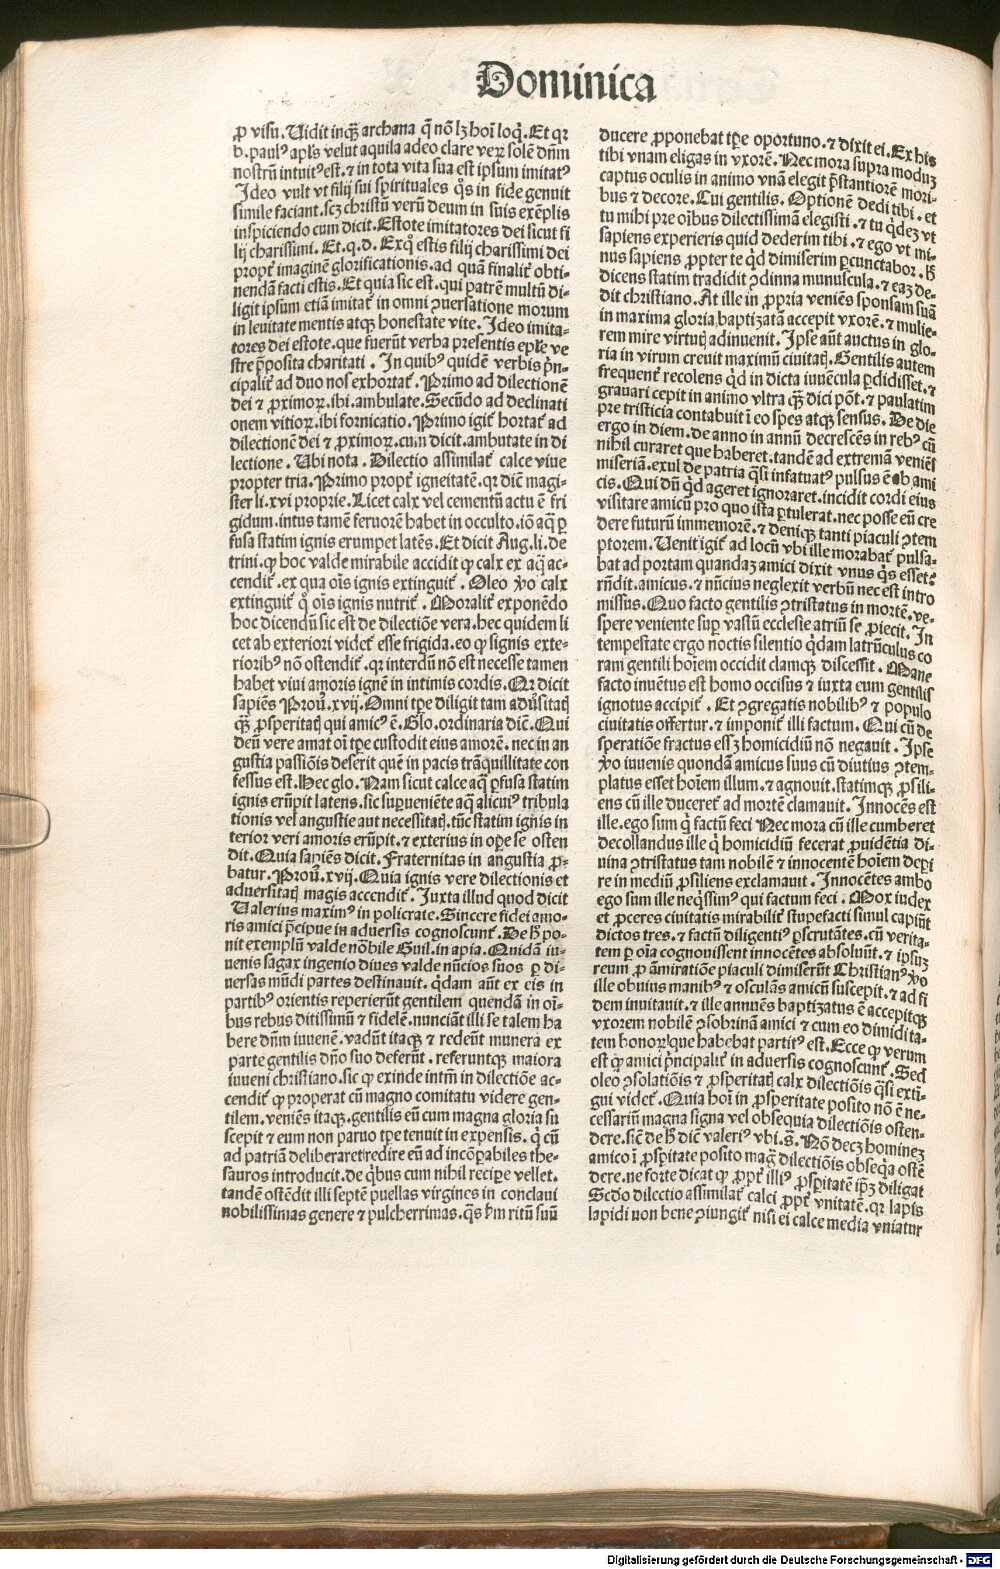 Dominica
ꝓ visu. Uidit inqꝫ archana q̃ nõ lꝫ hoĩ loq̃. Et qꝛ
b. paulꝰ apl's velut aquila adeo clare veꝝ solẽ dñm
nostrũ intuitꝰ est. ⁊ in tota vita sua est ipsum imitatꝰ
Ideo vult vt filij sui spirituales q̊s in fide genuit
simile faciant. scꝫ christũ verũ deum in suis exẽplis
inspiciendo cum dicit. Estote imitatores dei sicut fi
lij charissimi. Et. q. d. Exq̊ estis filij charissimi dei
propt' imaginẽ glorificationis. ad quã finalit' obti-
nendã facti estis. Et quia sic est. qui patrẽ multũ di-
ligit ipsum etiã imitat' in omni ꝯuersatione morum
in leuitate mentis atqꝫ honestate vite. Ideo imita-
tores dei estote. que fuerũt verba presentis epl'e ve
stre p̃posita charitati. In quibꝰ quidẽ verbis p̃n-
cipalit' ad duo nos exhortat'. Primo ad dilectionẽ
dei ⁊ ꝓximoꝝ. ibi. ambulate. Secũdo ad declinati
onem vitioꝝ. ibi fornicatio. Primo igit' hortat' ad
dilectionẽ dei ⁊ ꝓximoꝝ. cum dicit. ambutate in di
lectione. Ubi nota. Dilectio assimilat' calce viue
propter tria. Primo propt' igneitatẽ. qꝛ diẽm magi-
ster li. xvi proprie. Licet calx vel cementũ actu ẽ fri
gidum. intus tamẽ feruorẽ habet in occulto. iõ aq̃ ꝑ
fusa statim ignis erumpet latẽs. Et dicit Aug. li. de
trini. ꝙ hoc valde mirabile accidit ꝙ calx ex aq̃ ac-
cendit'. ex qua oĩs ignis extinguit'. Oleo ꝟo calx
extinguit' q̊ oĩs ignis nutrit'. Moralit' exponẽdo
hoc dicendũ sic est de dilectiõe vera. hec quidem li
cet ab exteriori videt' esse frigida. eo ꝙ signis exte-
rioribꝰ nõ ostendit'. qꝛ interdũ nõ est necesse tamen
habet viui amoris ignẽ in intimis cordis. Qꝛ dicit
sapiẽs Prou̾. xvij. Omni tꝑe diligit tam adu̾sitatꝭ
qꝫ̃ ꝓsperitatꝭ qui amicꝰ ẽ. Glo. ordinaria diẽ. Qui
deũ vere amat oĩ tꝑe custodit eius amorẽ. nec in an
gustia passiõis deserit quẽ in pacis trãquillitate con
fessus est. Hec glo. Nam sicut calce aq̃ ꝑfusa statim
ignis erũpit latens. sic suꝑueniẽte aq̃ alicuiꝰ tribula
tionis vel angustie aut necessitatꝭ. tũc statim ignis in
terior veri amoris erũpit. ⁊ exterius in oꝑe se osten
dit. Quia sapiẽs dicit. Fraternitas in angustia ꝓ-
batur. Prou̾. xvij. Quia ignis vere dilectionis et
aduersitatꝭ magis accendit'. Juxta illud quod dicit
Ualerius maximꝰ in policrate. Sincere fidei amo-
ris amici p̃cipue in aduersis cognoscunt'. De h̃ po-
nit exemplũ valde nõbile Guil. in apia. Quidã iu-
uenis sagax ingenio diues valde nũcios suos ꝑ di-
uersas mũdi partes destinauit. q̃dam aũt ex eis in
partibꝰ orientis reperierũt gentilem quendã in oĩ-
bus rebus ditissimũ ⁊ fidelẽ. nunciãt illi se talem ha
bere dñm iuuenẽ. vadũt itaqꝫ ⁊ redeũt munera ex
parte gentilis dño suo deferũt. referuntqꝫ maiora
iuueni christiano. sic ꝙ exinde intm̃ in dilectiõe ac-
cendit' ꝙ properat cũ magno comitatu videre gen-
tilem. veniẽs itaqꝫ. gentilis eũ cum magna gloria su
scepit ⁊ eum non paruo tꝑe tenuit in expensis. q̃ cũ
ad patriã deliberaret redire eũ ad incõꝑabiles the-
sauros introducit. de q̃bus cum nihil reciꝑe vellet.
tandẽ ostẽdit illi septẽ puellas virgines in conclaui
nobilissimas genere ⁊ pulcherrimas. q̃s ẜm ritũ suũ
ducere ꝓponebat tꝑe oportuno. ⁊ dixit ei. Ex his
tibi vnam eligas in vxorẽ. Nec mora supra moduꝫ
captus oculis in animo vnã elegit p̃stantiorẽ mori-
bus ⁊ decore. Cui gentilis. Optionẽ dedi tibi. et
tu mihi pre oĩbus dilectissimã elegisti. ⁊ tu q̃dez vt
sapiens experieris quid dederim tibi. ⁊ ego vt mi-
nus sapiens ꝓpter te q̃d dimiserim ꝑcunctabor. h̃
dicens statim tradidit ꝯdinna munuscula. ⁊ eaꝫ de-
dit christiano. At ille in ꝓpria veniẽs sponsam suã
in maxima gloria baptizatã accepit vxorẽ. ⁊ mulie-
rem mire virtutꝭ adinuenit. Ipse aũt auctus in glo-
ria in virum creuit maximũ ciuitatꝭ. Gentilis autem
frequent' recolens q̃d in dicta iuuẽcula ꝑdidisset. ⁊
grauari cepit in animo vltra qꝫ̃ dici põt. ⁊ paulatim
pre tristicia contabuit ĩ eo spes atqꝫ sensus. De die
ergo in diem. de anno in annũ decrescẽs in rebꝰ cũ
nihil curaret que haberet. tandẽ ad extremã veniẽs
miseriã. exul de patria q̃si infatuatꝰ pulsus ẽ ab ami
cis. Qui dũ q̃d ageret ignoraret. incidit cordi eius
visitare amicũ pro quo ista ꝑtulerat. nec posse eũ cre
dere futurũ immemorẽ. ⁊ deniqꝫ tanti piaculi ꝯtem
ptorem. Uenit igit' ad locũ vbi ille morabat' pulsa-
bat ad portam quandaꝫ amici dixit vnus q̃s esset?
rñdit. amicus. ⁊ nũcius neglexit verbũ nec est intro
missus. Quo facto gentilis ꝯtristatus in mortẽ. ve-
spere veniente suꝑ vastũ ecclesie atriũ se ꝓiecit. In
tempestate ergo noctis silentio q̃dam latrũculus co
ram gentili hoĩem occidit clamqꝫ discessit. Mane
facto inuẽtus est homo occisus ⁊ iuxta eum gentilis
ignotus accipit'. Et ꝯgregatis nobilibꝰ ⁊ populo
ciuitatis offertur. ⁊ imponit' illi factum. Qui cũ de
speratiõe fractus essꝫ homicidiũ nõ negauit. Ipse
ꝟo iuuenis quondã amicus suus cũ diutius ꝯtem-
platus esset hoĩem illum. ⁊ agnouit. statimqꝫ ꝓsili-
ens cũ ille duceret' ad mortẽ clamauit. Innocẽs est
ille. ego sum q̃ factũ feci Nec mora cũ ille cumberet
decollandus ille q̃ homicidiũ fecerat ꝓuidẽtia di-
uina ꝯtristatus tam nobilẽ ⁊ innocentẽ hoĩem deꝑi
re in mediũ ꝓsiliens exclamauit. Innocẽtes ambo
ego sum ille neq̃ssimꝰ qui factum feci. Mox iudex
et ꝓceres ciuitatis mirabilit' stupefacti simul capiũt
dictos tres. ⁊ factũ diligentiꝰ ꝑscrutãtes. cũ verita-
tem ꝑ oĩa cognouissent innocẽtes absoluũt. ⁊ ipsuꝫ
reum ꝓ ãmiratiõe piaculi dimiserũt Christianꝰ ꝟo
ille obuius manibꝰ ⁊ osculãs amicũ suscepit. ⁊ ad fi
dem inuitauit. ⁊ ille annuẽs baptizatus ẽ accepitqꝫ
vxorem nobilẽ ꝯsobrinã amici ⁊ cum eo dimidi ta-
tem honoꝝ que habebat partitꝰ est. Ecce ꝙ verum
est ꝙ amici p̃ncipalit' in aduersis cognoscunt'. Sed
oleo ꝯsolatiõis ⁊ ꝓsperitatꝭ calx dilectiõis q̃si extĩ-
gui videt'. Quia hoĩ in ꝓsperitate posito nõ ẽ ne-
cessariũ magna signa vel obsequia dilectiõis osten-
dere. siẽ de h̃ diẽ valeriꝰ vbi. s̃. Nõ deceꝫ homineꝫ
amico ĩ ꝓsꝑitate posito mag̃ dilectiõis obseq̃a ostẽ
dere. ne forte dicat ꝙ ꝓpt' illiꝰ ꝓsꝑitatẽ ip̃ꝫ diligat
Scd̃o dilectio assimilat' calci ꝓpt' vnitatẽ. qꝛ lapis
lapidi non bene ꝯiungit' nisi ei calce media vniatur
Digitalisierung gefördert durch die Deutsche Forschungsgemeinschaft - DFG